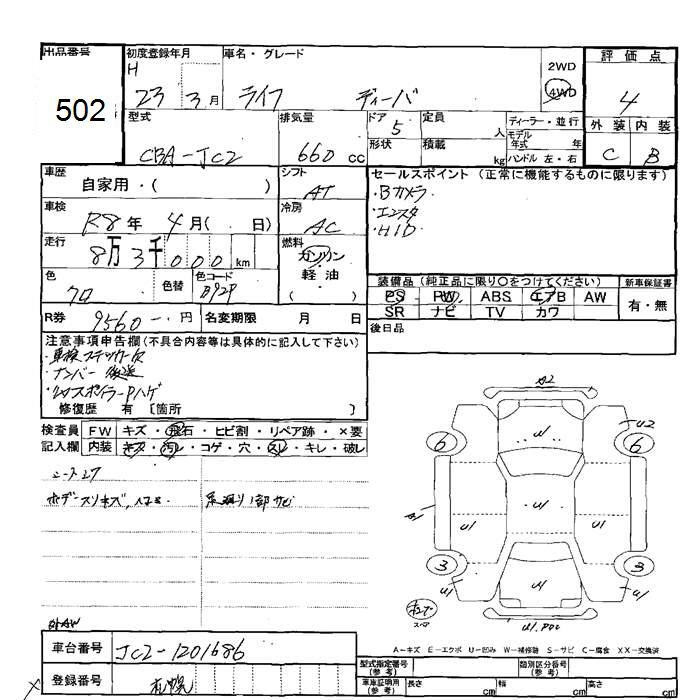 出品番号
502
初度登録年月
H 23 3月
車名・グレード
ライフ ディーバ
2WD
4WD
評価点
4
型式
CBA-JC2
排気量
660 cc
ドア
5
形状
定員
人
積載
kg
ディーラー・並行
モデル
年式 年
ハンドル 左・右
外装 内装
C B
車歴
自家用・( )
シフト
AT
セールスポイント (正常に機能するものに限ります)
・Bカメラ
・エンスタ
・HID
車検
R8年 4月( 日)
冷房
AC
走行
8万3千000km
燃料
ガソリン
・
軽油
( )
色
クロ
色替
色コード
B92P
装備品 (純正品に限り○をつけてください)
PS・PW・ABS・エアB・AW
SR ナビ・TV・カワ
新車保証書
有・無
R券 9560-円
名変期限 月 日
後日品
注意事項申告欄(不具合内容等は具体的に記入して下さい)
・車検ステッカー欠
・ナンバー後送
・リヤスポイラーPハゲ
修復歴 有 [箇所 ]
検査員 FW キズ・飛石・ヒビ割・リペア跡・×要
記入欄 内装 キズ・汚レ・コゲ・穴・スレ・キレ・破レ
A2
U2
6
6
U
A1
U1
U
U1
3
3
U1
U
U1
U1.P00
A-キズ E-エクボ U-凹み W-補修跡 S-サビ C-腐食 XX-交換済
車台番号 JC2-1201686
登録番号 札幌
型式指定番号
(参考)
類別区分番号
(参考)
車庫証明用
(参考)
長さ cm
幅 cm
高さ cm